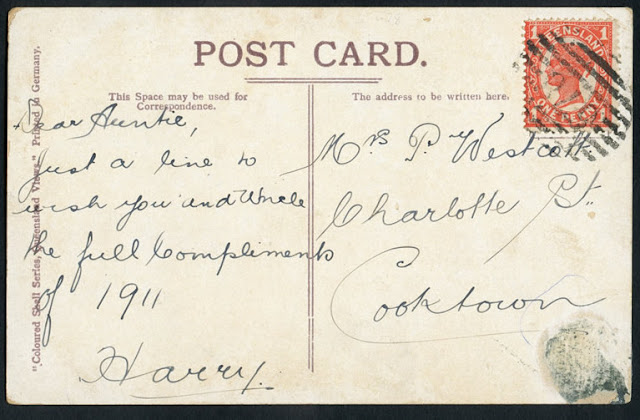 POST CARD.
This Space may be used for
Correspondence.
The address to be written here.
"Coloured Shell Series, Queensland Views." Printed in Germany.
QUEENSLAND
1 1
ONE PENNY
Dear Auntie,
Just a line to
wish you and Uncle
the full Compliments
of 1911
Harry.
Mrs P. Westcott
Charlotte St.
Cooktown